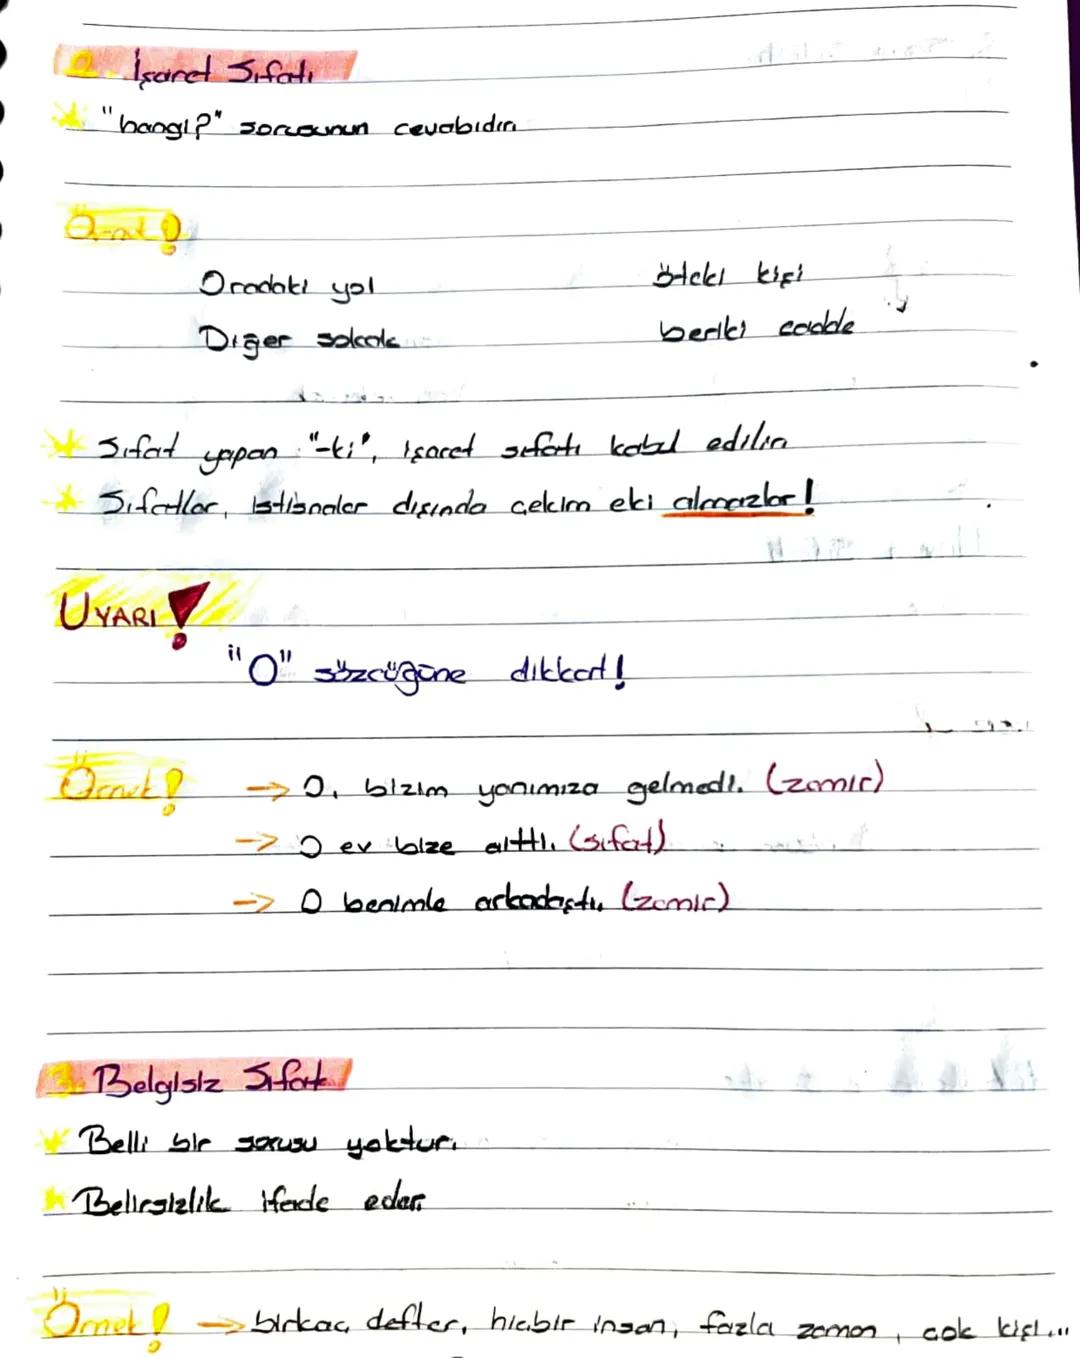 2. İşaret Sıfatı
"hangi?" sorusunun cevabıdır.
Örnek!
Oradaki yol öteki kişi
Diğer sokak beriki cadde
Sıfat yapan "-ki", işaret sıfatı kabul edilir.
Sıfatlar, istisnalar dışında çekim eki almazlar!
UYARI!
"O" sözcüğüne dikkat!
Örnek! → O, bizim yanımıza gelmedi. (zamir)
→ O ev bize aitti. (sıfat)
→ O benimle arkadaştı. (zamir)
3. Belgisiz Sıfat
Belli bir sorusu yoktur.
Belirsizlik ifade eder.
Örnek! → birkaç defter, hiçbir insan, fazla zaman, çok kişi...